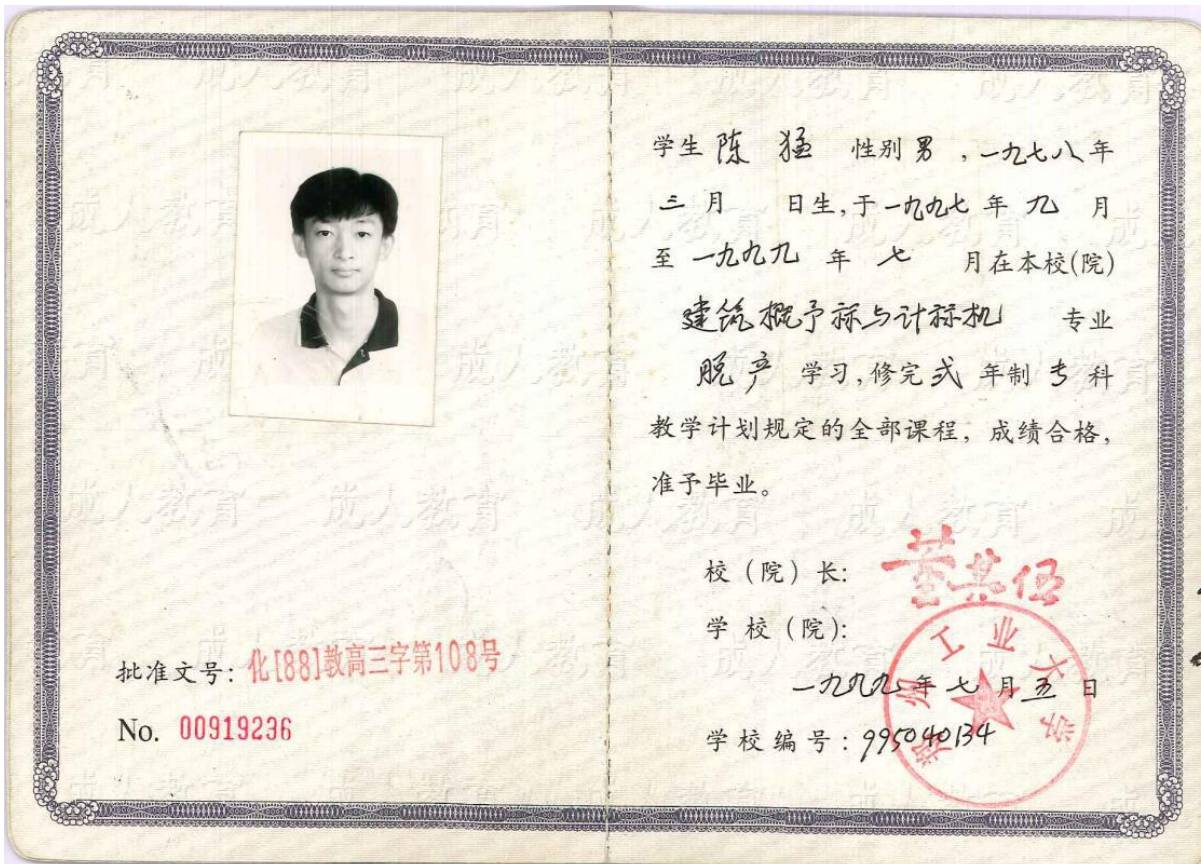 批准文号：化[88]教高三字第108号
No. 00919236
学生 陈 猛 性别 男 ，一九七八年
三月 日生，于一九九七年 九 月
至 一九九九 年 七 月在本校(院)
建筑概予祘与计祘机 专业
脱产 学习，修完 弍 年制 专 科
教学计划规定的全部课程，成绩合格，
准予毕业。
校（院）长： 董其伍
学 校（院）：
郑州工业大学
一九九九年 七 月 五 日
学校编号：995040134
成人教育